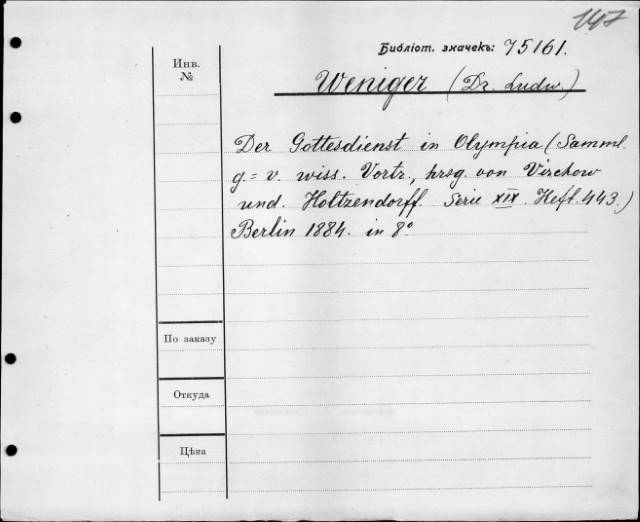 147
Библіот. значекъ: 75161.
Инв.
№
Weniger (Dr. Ludw.)
Der Gottesdienst in Olympia (Samml.
g.= v. wiss. Vortr., hrsg. von Virchow
und. Holtzendorff. Serie XIX. Heft. 443.)
Berlin 1884. in 8°
По заказу
Откуда
Цѣна